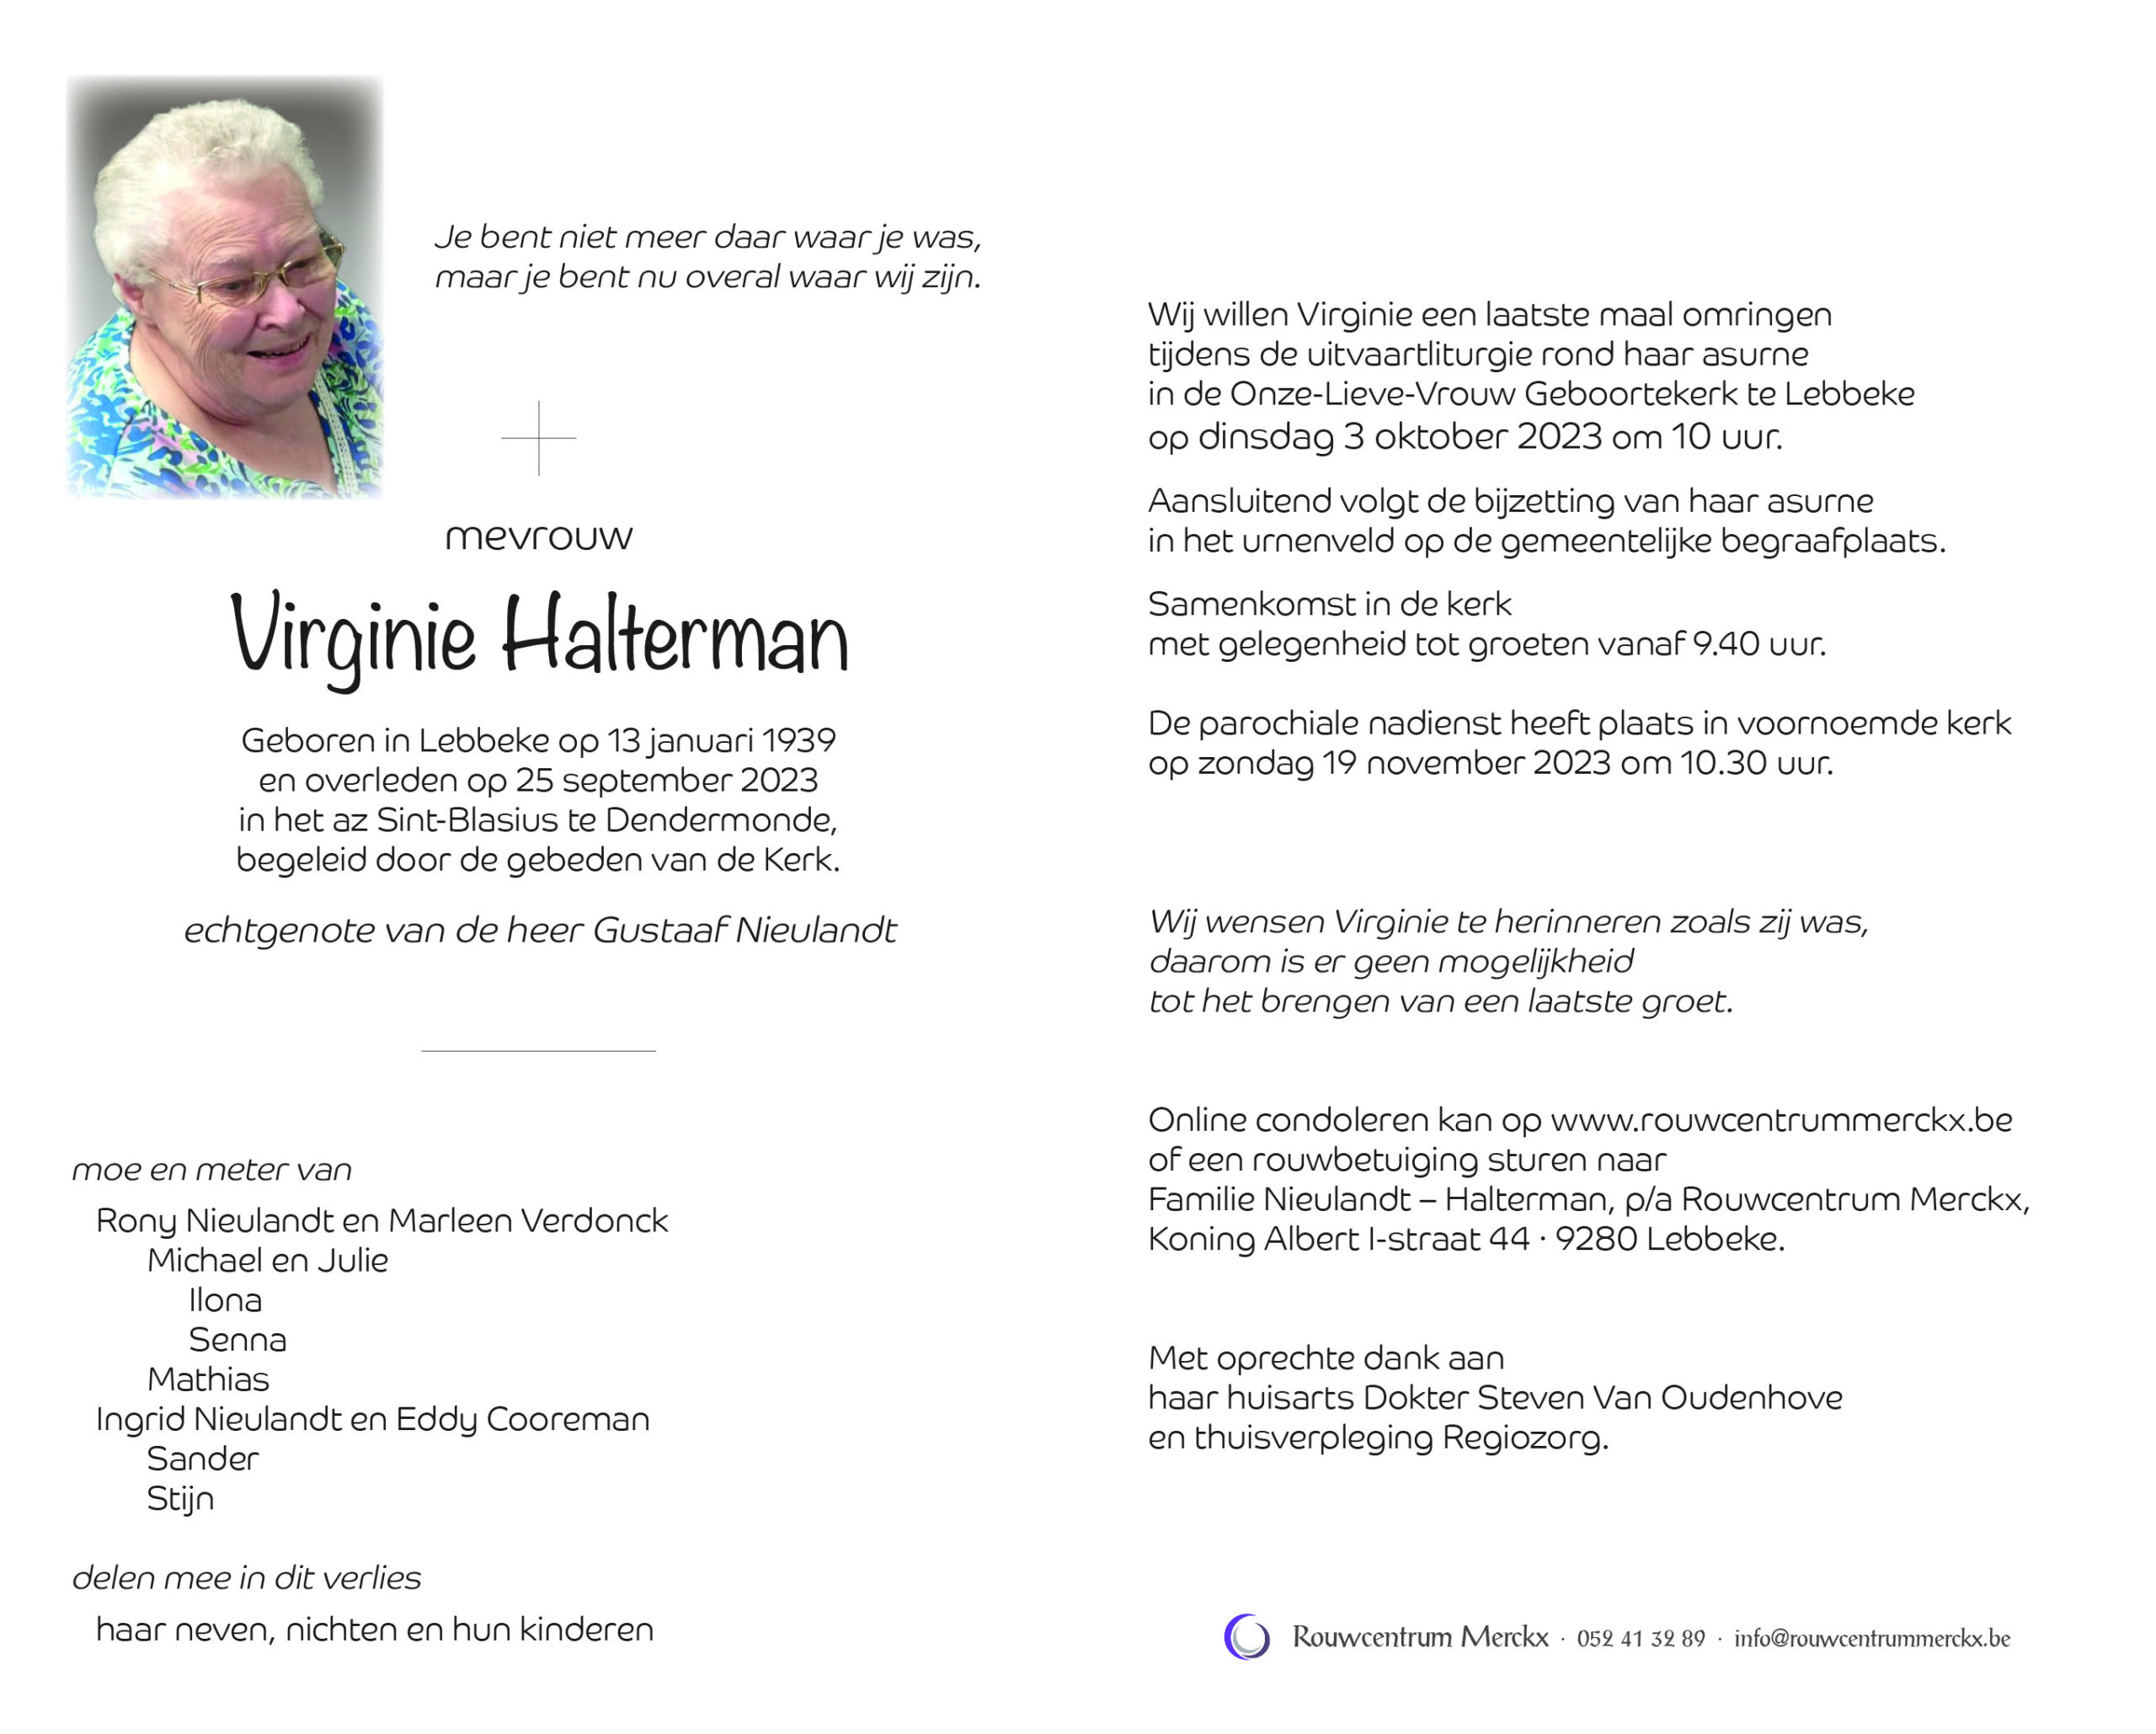 Je bent niet meer daar waar je was,
maar je bent nu overal waar wij zijn.
mevrouw
Virginie Halterman
Geboren in Lebbeke op 13 januari 1939
en overleden op 25 september 2023
in het az Sint-Blasius te Dendermonde,
begeleid door de gebeden van de Kerk.
echtgenote van de heer Gustaaf Nieulandt
moe en meter van
Rony Nieulandt en Marleen Verdonck
Michael en Julie
Ilona
Senna
Mathias
Ingrid Nieulandt en Eddy Cooreman
Sander
Stijn
delen mee in dit verlies
haar neven, nichten en hun kinderen
Wij willen Virginie een laatste maal omringen
tijdens de uitvaartliturgie rond haar asurne
in de Onze-Lieve-Vrouw Geboortekerk te Lebbeke
op dinsdag 3 oktober 2023 om 10 uur.
Aansluitend volgt de bijzetting van haar asurne
in het urnenveld op de gemeentelijke begraafplaats.
Samenkomst in de kerk
met gelegenheid tot groeten vanaf 9.40 uur.
De parochiale nadienst heeft plaats in voornoemde kerk
op zondag 19 november 2023 om 10.30 uur.
Wij wensen Virginie te herinneren zoals zij was,
daarom is er geen mogelijkheid
tot het brengen van een laatste groet.
Online condoleren kan op www.rouwcentrummerckx.be
of een rouwbetuiging sturen naar
Familie Nieulandt – Halterman, p/a Rouwcentrum Merckx,
Koning Albert I-straat 44 · 9280 Lebbeke.
Met oprechte dank aan
haar huisarts Dokter Steven Van Oudenhove
en thuisverpleging Regiozorg.
Rouwcentrum Merckx · 052 41 32 89 · info@rouwcentrummerckx.be